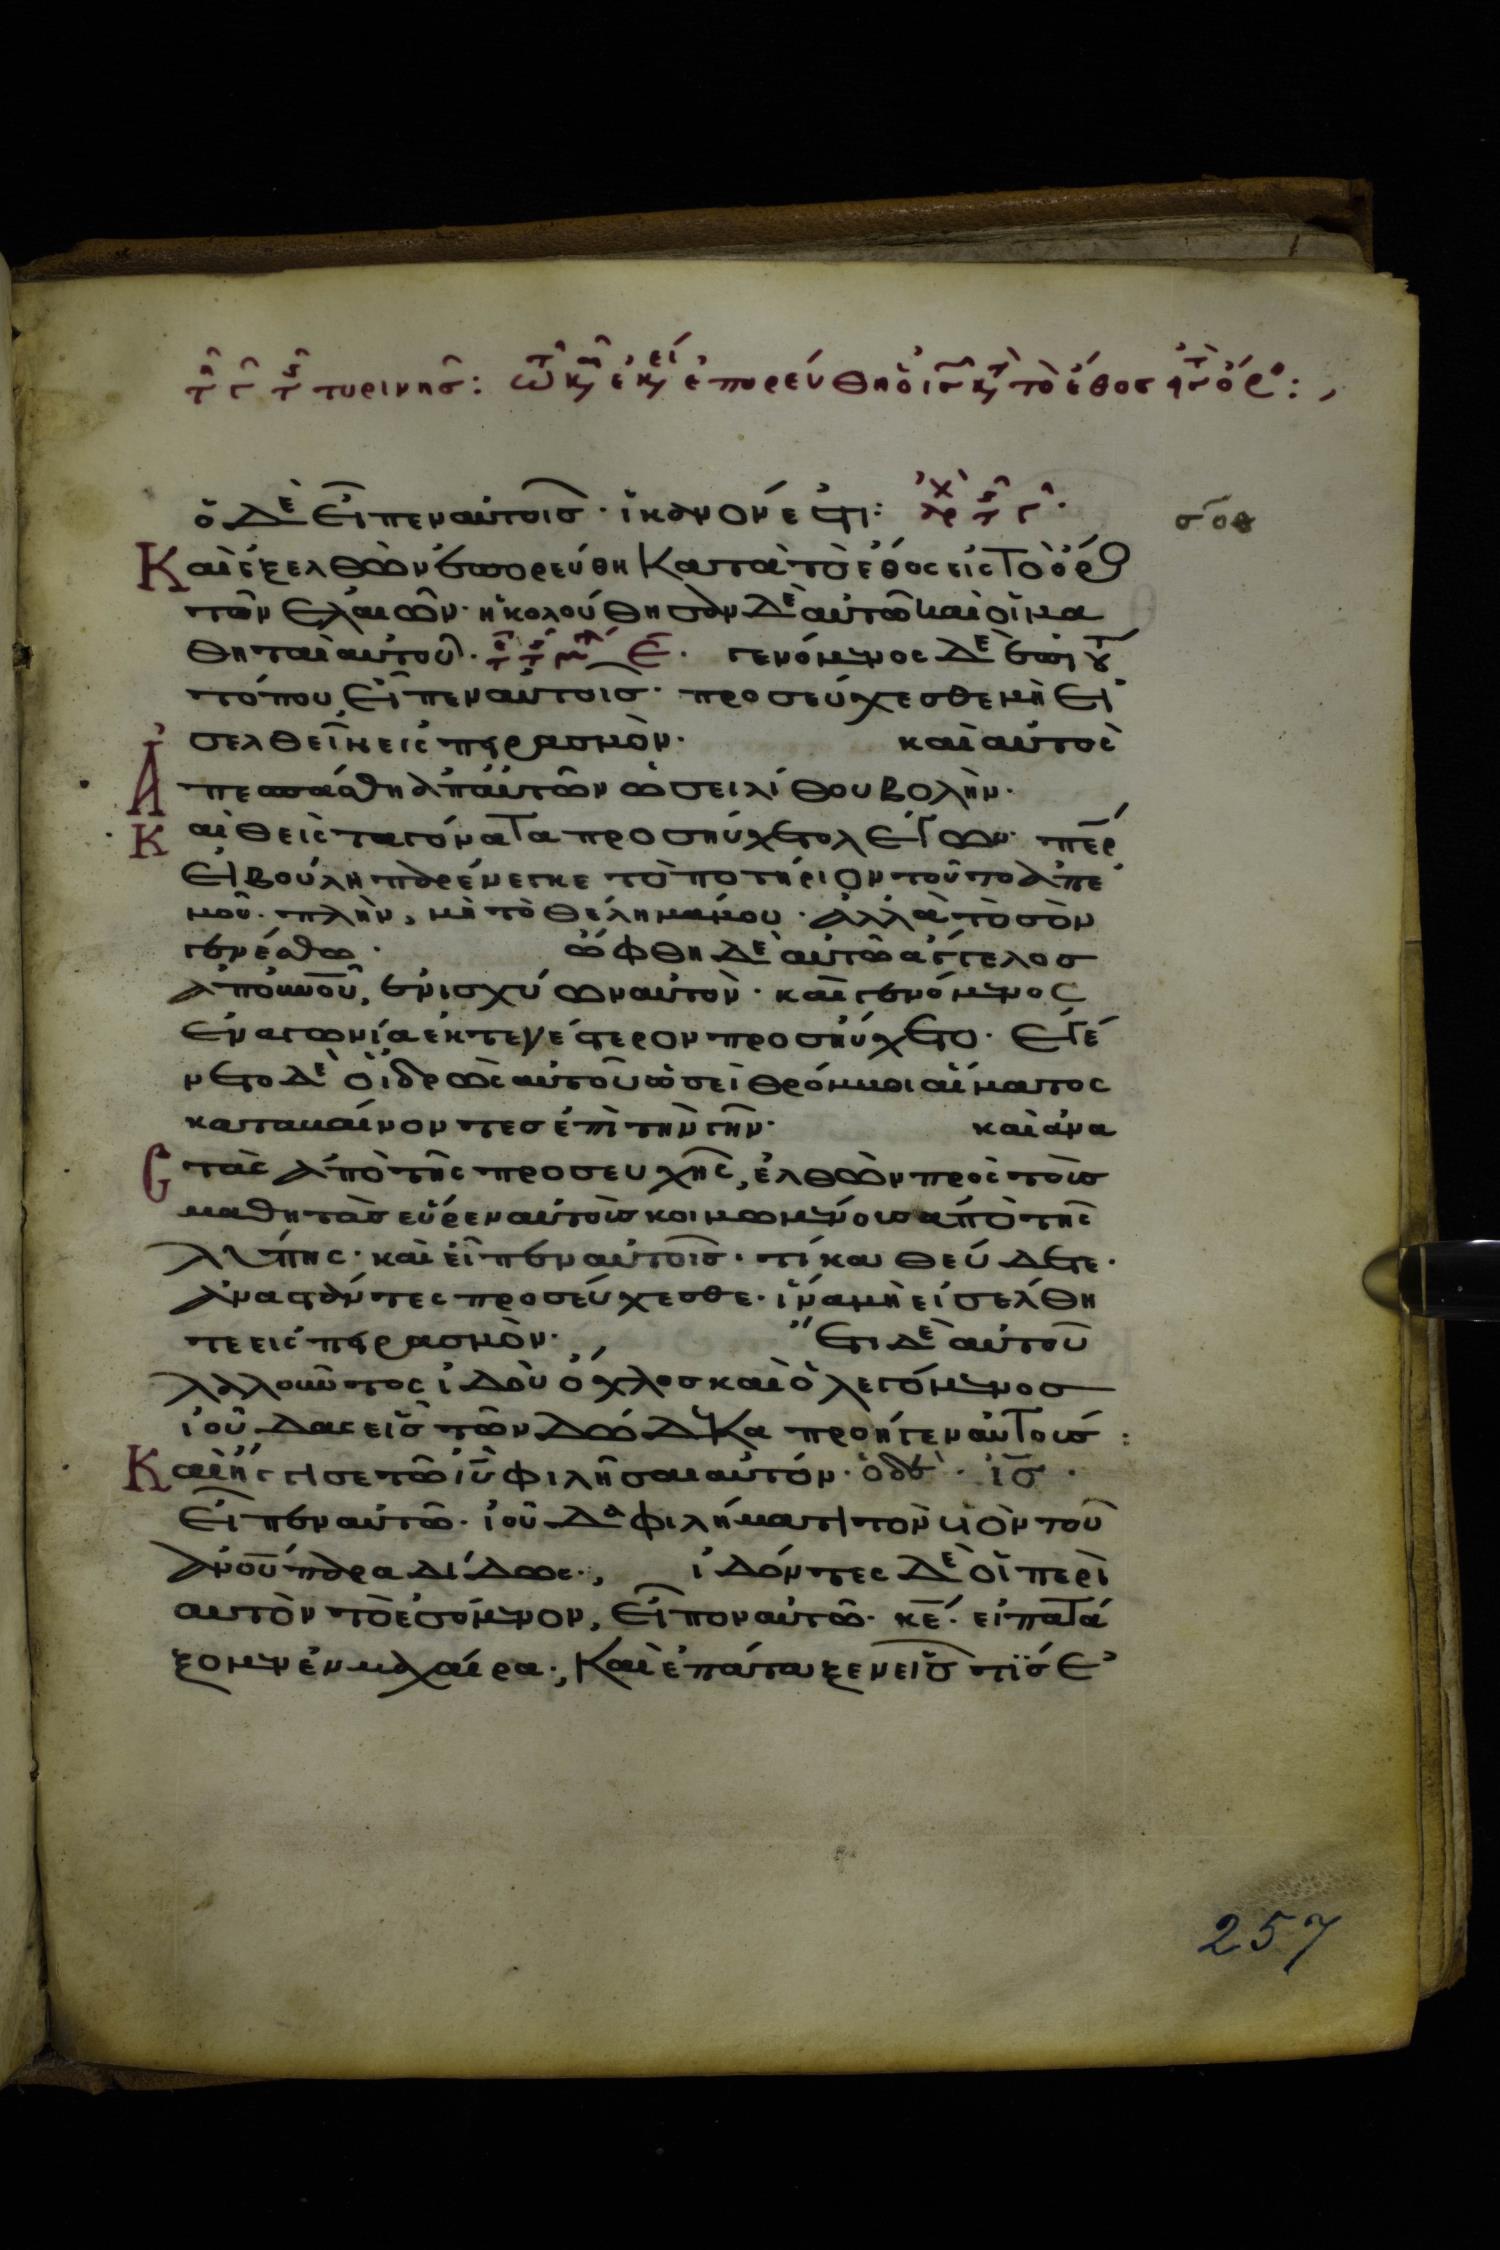 τῇ γ τῆς τυρινῆς: τῷ καιρῷ ἐκεί ἐπορεύθη ὁ ις κατὰ τὸ ἔθος εἰς τὸ ὄρος:
ὁ δὲ εἶπεν αὐτοῖς· ἱκανόν ἐστι: σοθ
Καὶ ἐξελθὼν ἐπορεύθη κατὰ τὸ ἔθος εἰς τὸ ὄρος
τῶν ἐλαιῶν· ἠκολούθησαν δὲ αὐτῶ καὶ οἱ μα
θηταὶ αὐτοῦ· γενόμενος δὲ ἐπὶ τοῦ
τόπου, εἶπεν αὐτοῖς· προσεύχεσθε μὴ εἰ
σελθεῖν εἰς πειρασμὸν· καὶ αὐτὸς
Ἀπεσπάσθη ἀπ αὐτῶν ὡσεὶ λίθου βολὴν·
Καὶ θεὶς τα γόνατα προσηύχετο λέγων· περ
εἰ βούλη παρένεγκε τὸ ποτήριον τοῦτο ἀπ ἐ
μοῦ· πλὴν, μὴ τὸ θέλημά μου· ἀλλὰ τὸ σὸν
γενέσθω· ὤφθη δὲ αὐτῶ ἄγγελος
ἀπ οὐνοῦ, ἐνισχύων αὐτὸν· καὶ γενόμενος
ἐν ἀγωνία ἐκτενέστερον προσηύχετο· ἐγέ
νετο δὲ ὁ ἱδρὼς αὐτοῦ ὡσεὶ θρόμβοι αἵματος
καταβαίνοντες ἐπὶ τὴν γῆν· καὶ ἀνα
Στὰς ἀπὸ τῆς προσευχῆς, ἐλθὼν πρὸς τοὺς
μαθητὰς εὗρεν αὐτοὺς κοιμωμένους ἀπὸ τῆς
λύπης· καὶ εἶπεν αὐτοῖς· τί καθεύδετε·
ἀναστάντες προσεύχεσθε· ἵνα μὴ εἰσέλθη
τε εἰς πειρασμὸν· Ἔτι δὲ αὐτοῦ
λαλοῦντος ἰδοὺ ὄχλος καὶ ὁ λεγόμενος
ἰούδας εἷς τῶν δώδεκα προῆγεν αὐτούς:
Καὶ ἤγγισε τῶ ιυ φιλῆσαι αὐτόν· ὁ δὲ ις·
εἶπεν αὐτῶ· ἰούδα φιλήματι τὸν υἱὸν τοῦ
ανου παραδίδως· ἰδόντες δὲ οἱ περὶ
αὐτὸν τὸ ἐσόμενον, εἶπον αὐτῶ· κε· εἰ πατά
ξομεν ἐν μαχαίρα· Καὶ ἐπάταξεν εἷς τις ἐ
257